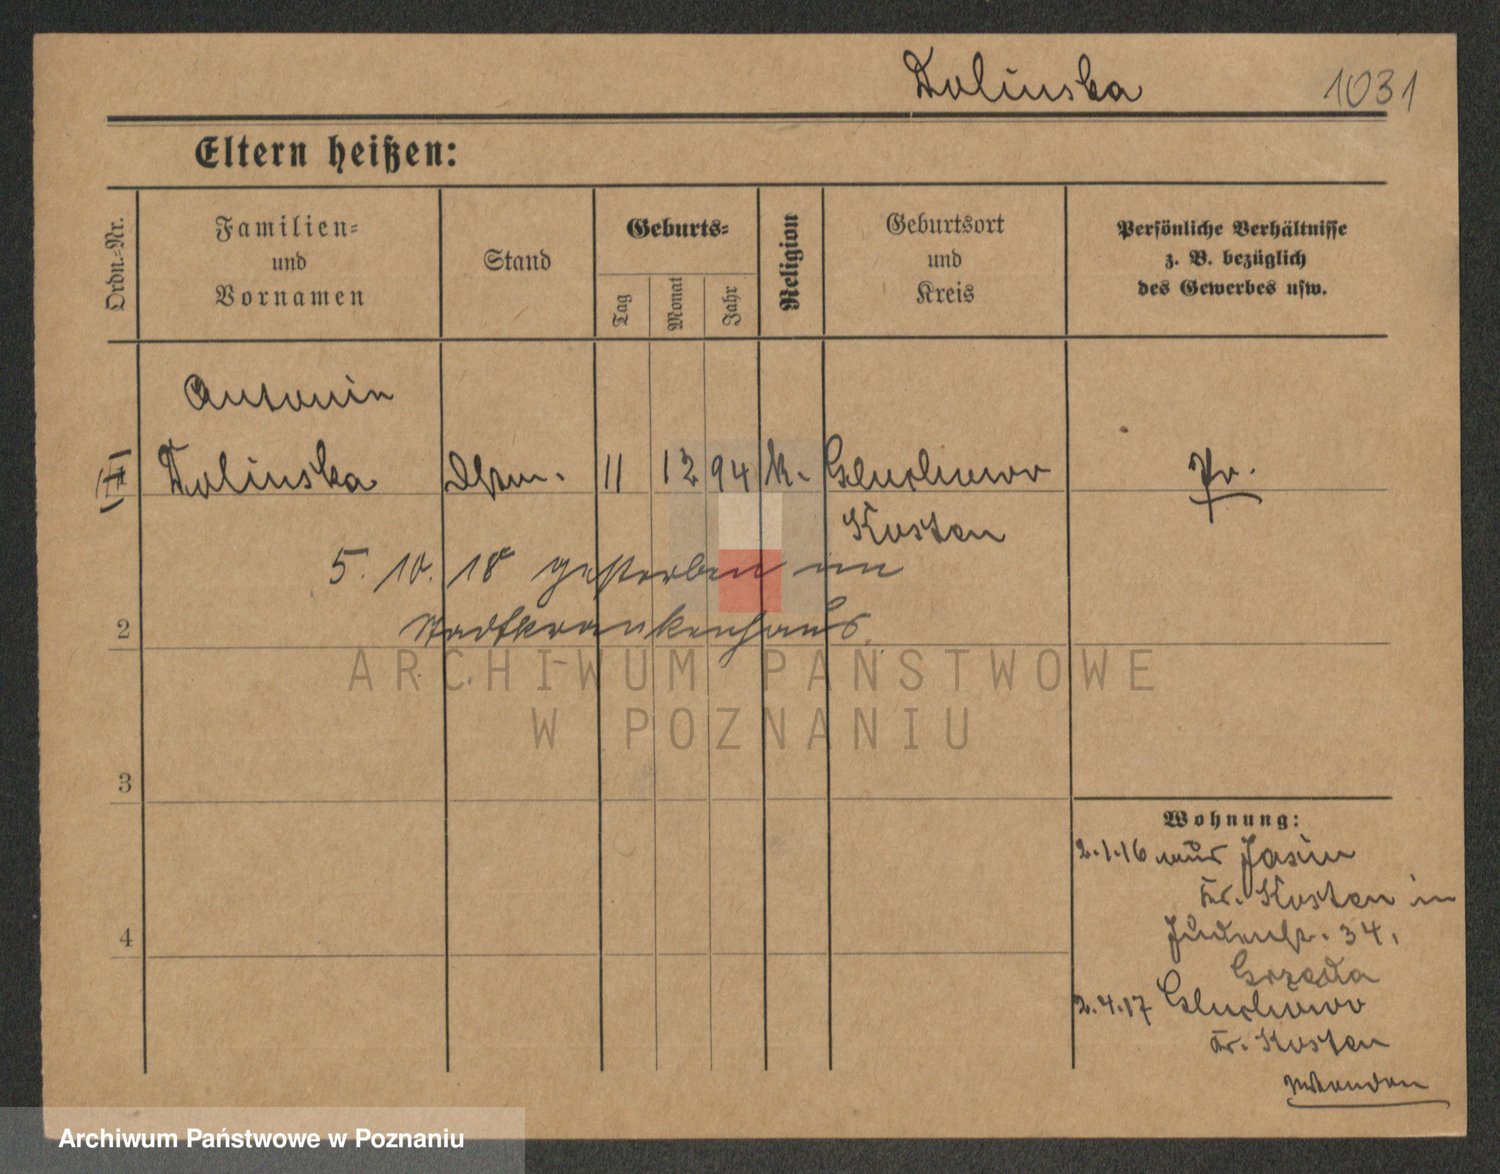 Dolinska 1031
Eltern heißen:
Ordn.-Nr.
Familien-
und
Vornamen
Stand
Geburts-
Tag
Monat
Jahr
Religion
Geburtsort
und
Kreis
Persönliche Verhältnisse
z. B. bezüglich
des Gewerbes usw.
Antonin
Dolinska 11 12 94 k. Gluchowo Pr.
Kosten
5. 10. 18 gestorben im
2 Stadtkrankenhaus
3
4
Wohnung:
2.1.16 Jasin
Kr. Kosten in
Judenstr. 34.
Grzeda
2.4.17 Gluchowo
Kr. Kosten
wenden
ARCHIWUM PAŃSTWOWE
W POZNANIU
Archiwum Państwowe w Poznaniu